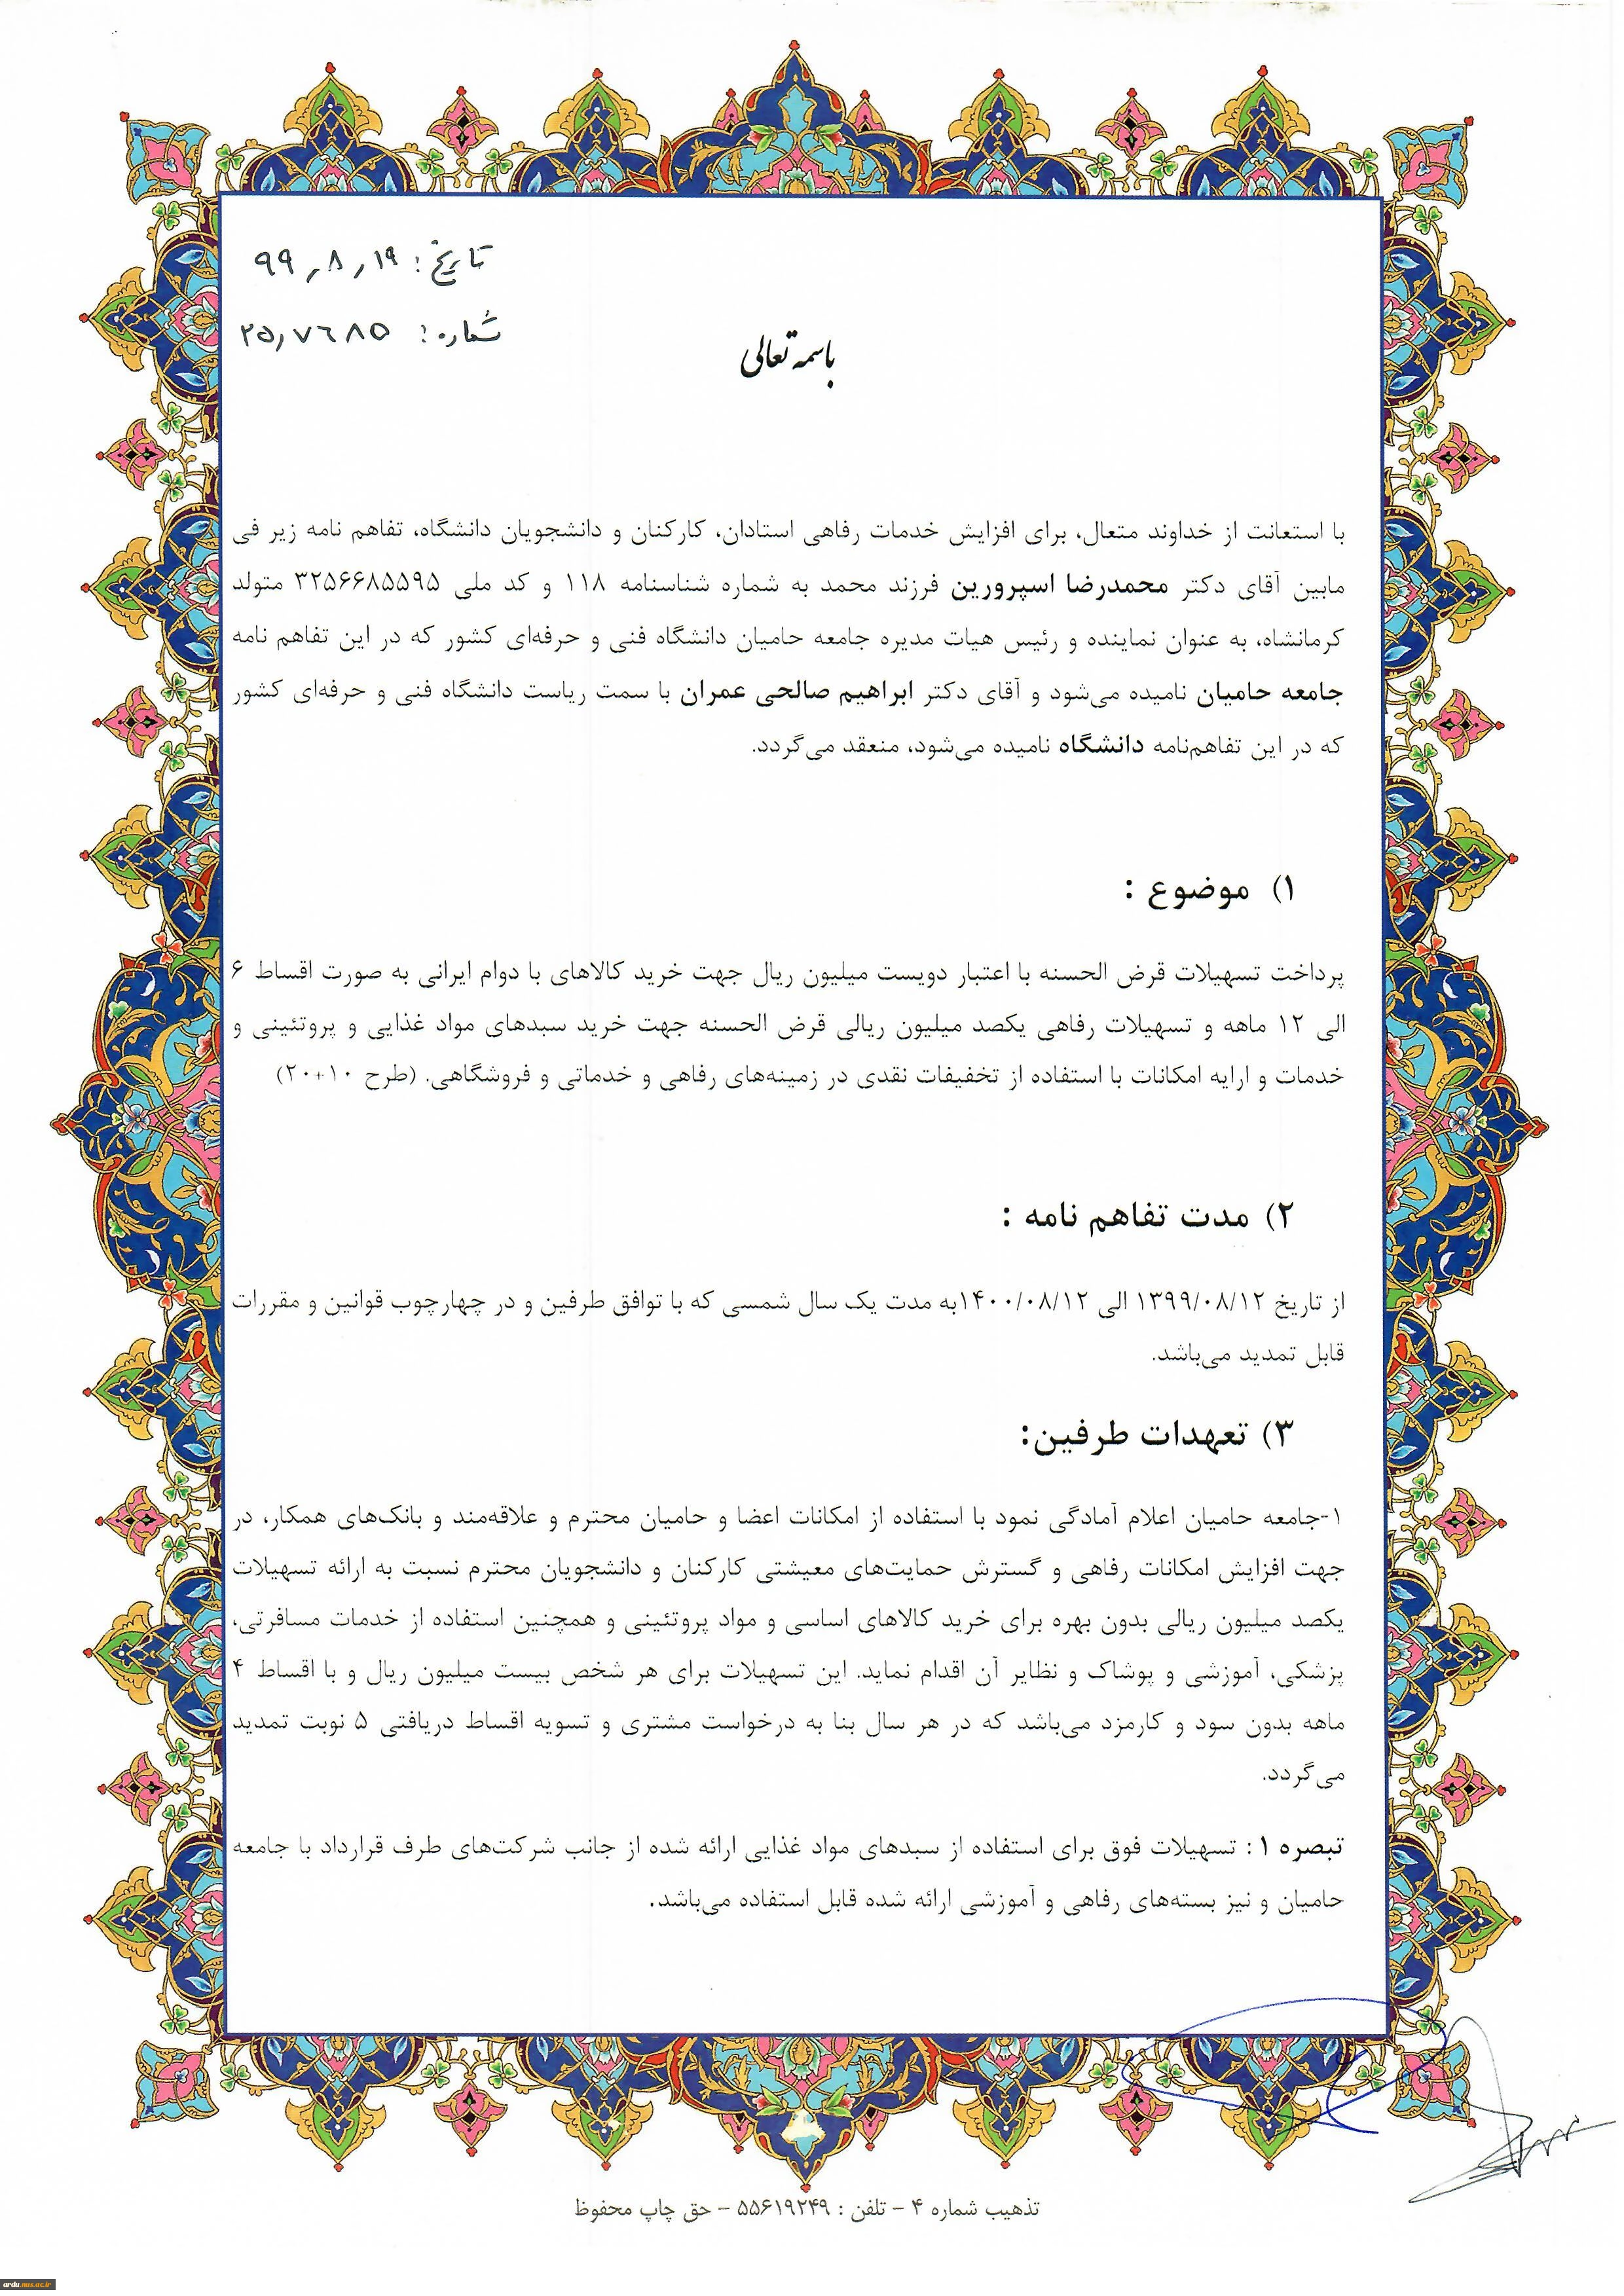 تاریخ: ۹۹٫۸٫۱۹
شماره: ۲۵٫۷۶۸۵
باسمه تعالی
با استعانت از خداوند متعال، برای افزایش خدمات رفاهی استادان، کارکنان و دانشجویان دانشگاه، تفاهم نامه زیر فی
مابین آقای دکتر محمدرضا اسپرورین فرزند محمد به شماره شناسنامه ۱۱۸ و کد ملی ۳۲۵۶۶۸۵۵۹۵ متولد
کرمانشاه، به عنوان نماینده و رئیس هیات مدیره جامعه حامیان دانشگاه فنی و حرفه‌ای کشور که در این تفاهم نامه
جامعه حامیان نامیده می‌شود و آقای دکتر ابراهیم صالحی عمران با سمت ریاست دانشگاه فنی و حرفه‌ای کشور
که در این تفاهم‌نامه دانشگاه نامیده می‌شود، منعقد می‌گردد.
۱) موضوع :
پرداخت تسهیلات قرض الحسنه با اعتبار دویست میلیون ریال جهت خرید کالاهای با دوام ایرانی به صورت اقساط ۶
الی ۱۲ ماهه و تسهیلات رفاهی یکصد میلیون ریالی قرض الحسنه جهت خرید سبدهای مواد غذایی و پروتئینی و
خدمات و ارایه امکانات با استفاده از تخفیفات نقدی در زمینه‌های رفاهی و خدماتی و فروشگاهی. (طرح ۱۰+۲۰)
۲) مدت تفاهم نامه :
از تاریخ ۱۳۹۹/۰۸/۱۲ الی ۱۴۰۰/۰۸/۱۲به مدت یک سال شمسی که با توافق طرفین و در چهارچوب قوانین و مقررات
قابل تمدید می‌باشد.
۳) تعهدات طرفین:
۱-جامعه حامیان اعلام آمادگی نمود با استفاده از امکانات اعضا و حامیان محترم و علاقه‌مند و بانک‌های همکار، در
جهت افزایش امکانات رفاهی و گسترش حمایت‌های معیشتی کارکنان و دانشجویان محترم نسبت به ارائه تسهیلات
یکصد میلیون ریالی بدون بهره برای خرید کالاهای اساسی و مواد پروتئینی و همچنین استفاده از خدمات مسافرتی،
پزشکی، آموزشی و پوشاک و نظایر آن اقدام نماید. این تسهیلات برای هر شخص بیست میلیون ریال و با اقساط ۴
ماهه بدون سود و کارمزد می‌باشد که در هر سال بنا به درخواست مشتری و تسویه اقساط دریافتی ۵ نوبت تمدید
می‌گردد.
تبصره ۱ : تسهیلات فوق برای استفاده از سبدهای مواد غذایی ارائه شده از جانب شرکت‌های طرف قرارداد با جامعه
حامیان و نیز بسته‌های رفاهی و آموزشی ارائه شده قابل استفاده می‌باشد.
تذهیب شماره ۴ – تلفن : ۵۵۶۱۹۲۴۹ – حق چاپ محفوظ
ardu.nus.ac.ir